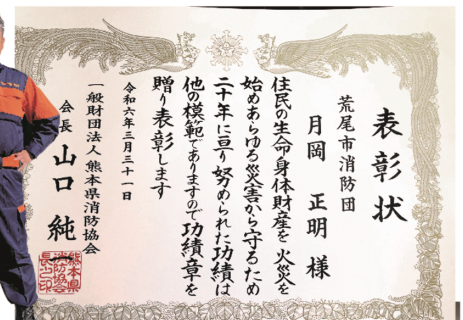 表彰状
荒尾市消防団
月岡 正明 様
住民の生命身体財産を火災を
始めあらゆる災害から守るため
二十年に亘り努められた功績は
他の模範でありますので功績章を
贈り表彰します
令和六年三月三十一日
一般財団法人 熊本県消防協会
会長 山口 純
熊本県
消防協会
長之印